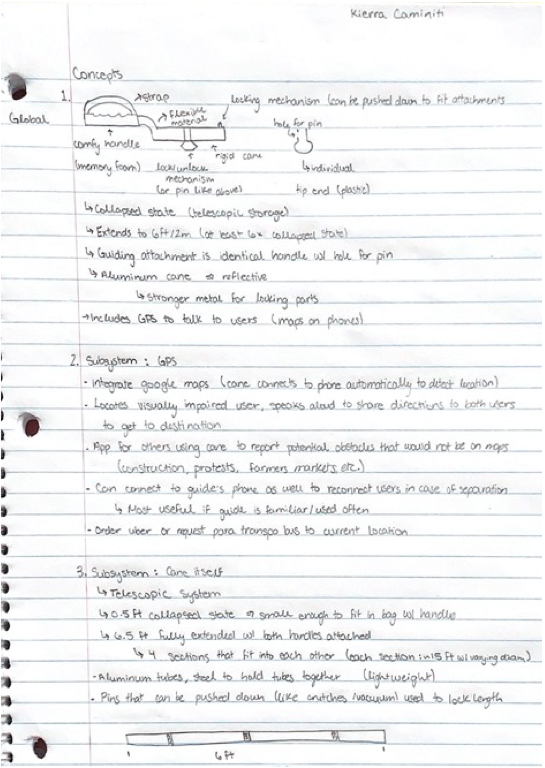 Kierra Caminiti
Concepts
1.
Global
→strap
locking mechanism (can be pushed down to fit attachments
flexible
material
hole for pin
comfy handle
(memory foam)
lock/unlock
mechanism
(or pin like above)
rigid cane
↳individual
tip end (plastic)
↳Collapsed state (telescopic storage)
↳Extends to 6ft/2m (at least 6x collapsed state)
↳Guiding attachment is identical handle w/ hole for pin
↳Aluminum cane ⇒ reflective
↳stronger metal for locking parts
→Includes GPS to talk to users (maps on phones)
2. Subsystem: GPS
- Integrate google maps (cane connects to phone automatically to detect location)
- Locates visually impaired user, speaks aloud to share directions to both users
to get to destination
- App for others using cane to report potential obstacles that would not be on maps
(construction, protests, farmers markets etc.)
- Can connect to guide's phone as well to reconnect users in case of separation
↳ Most useful if guide is familiar/used often
- Order uber or request para transpo bus to current location
3. Subsystem: Cane itself
↳Telescopic system
↳0.5 ft collapsed state ⇒ small enough to fit in bag w/ handles
↳6.5 ft fully extended w/ both handles attached
↳ 4 sections that fit into each other (each section: in 1.5 ft w/ varying diam)
- Aluminum tubes, steel to hold tubes together (lightweight)
- Pins that can be pushed down (like crutches/vacuum) used to lock length
6ft